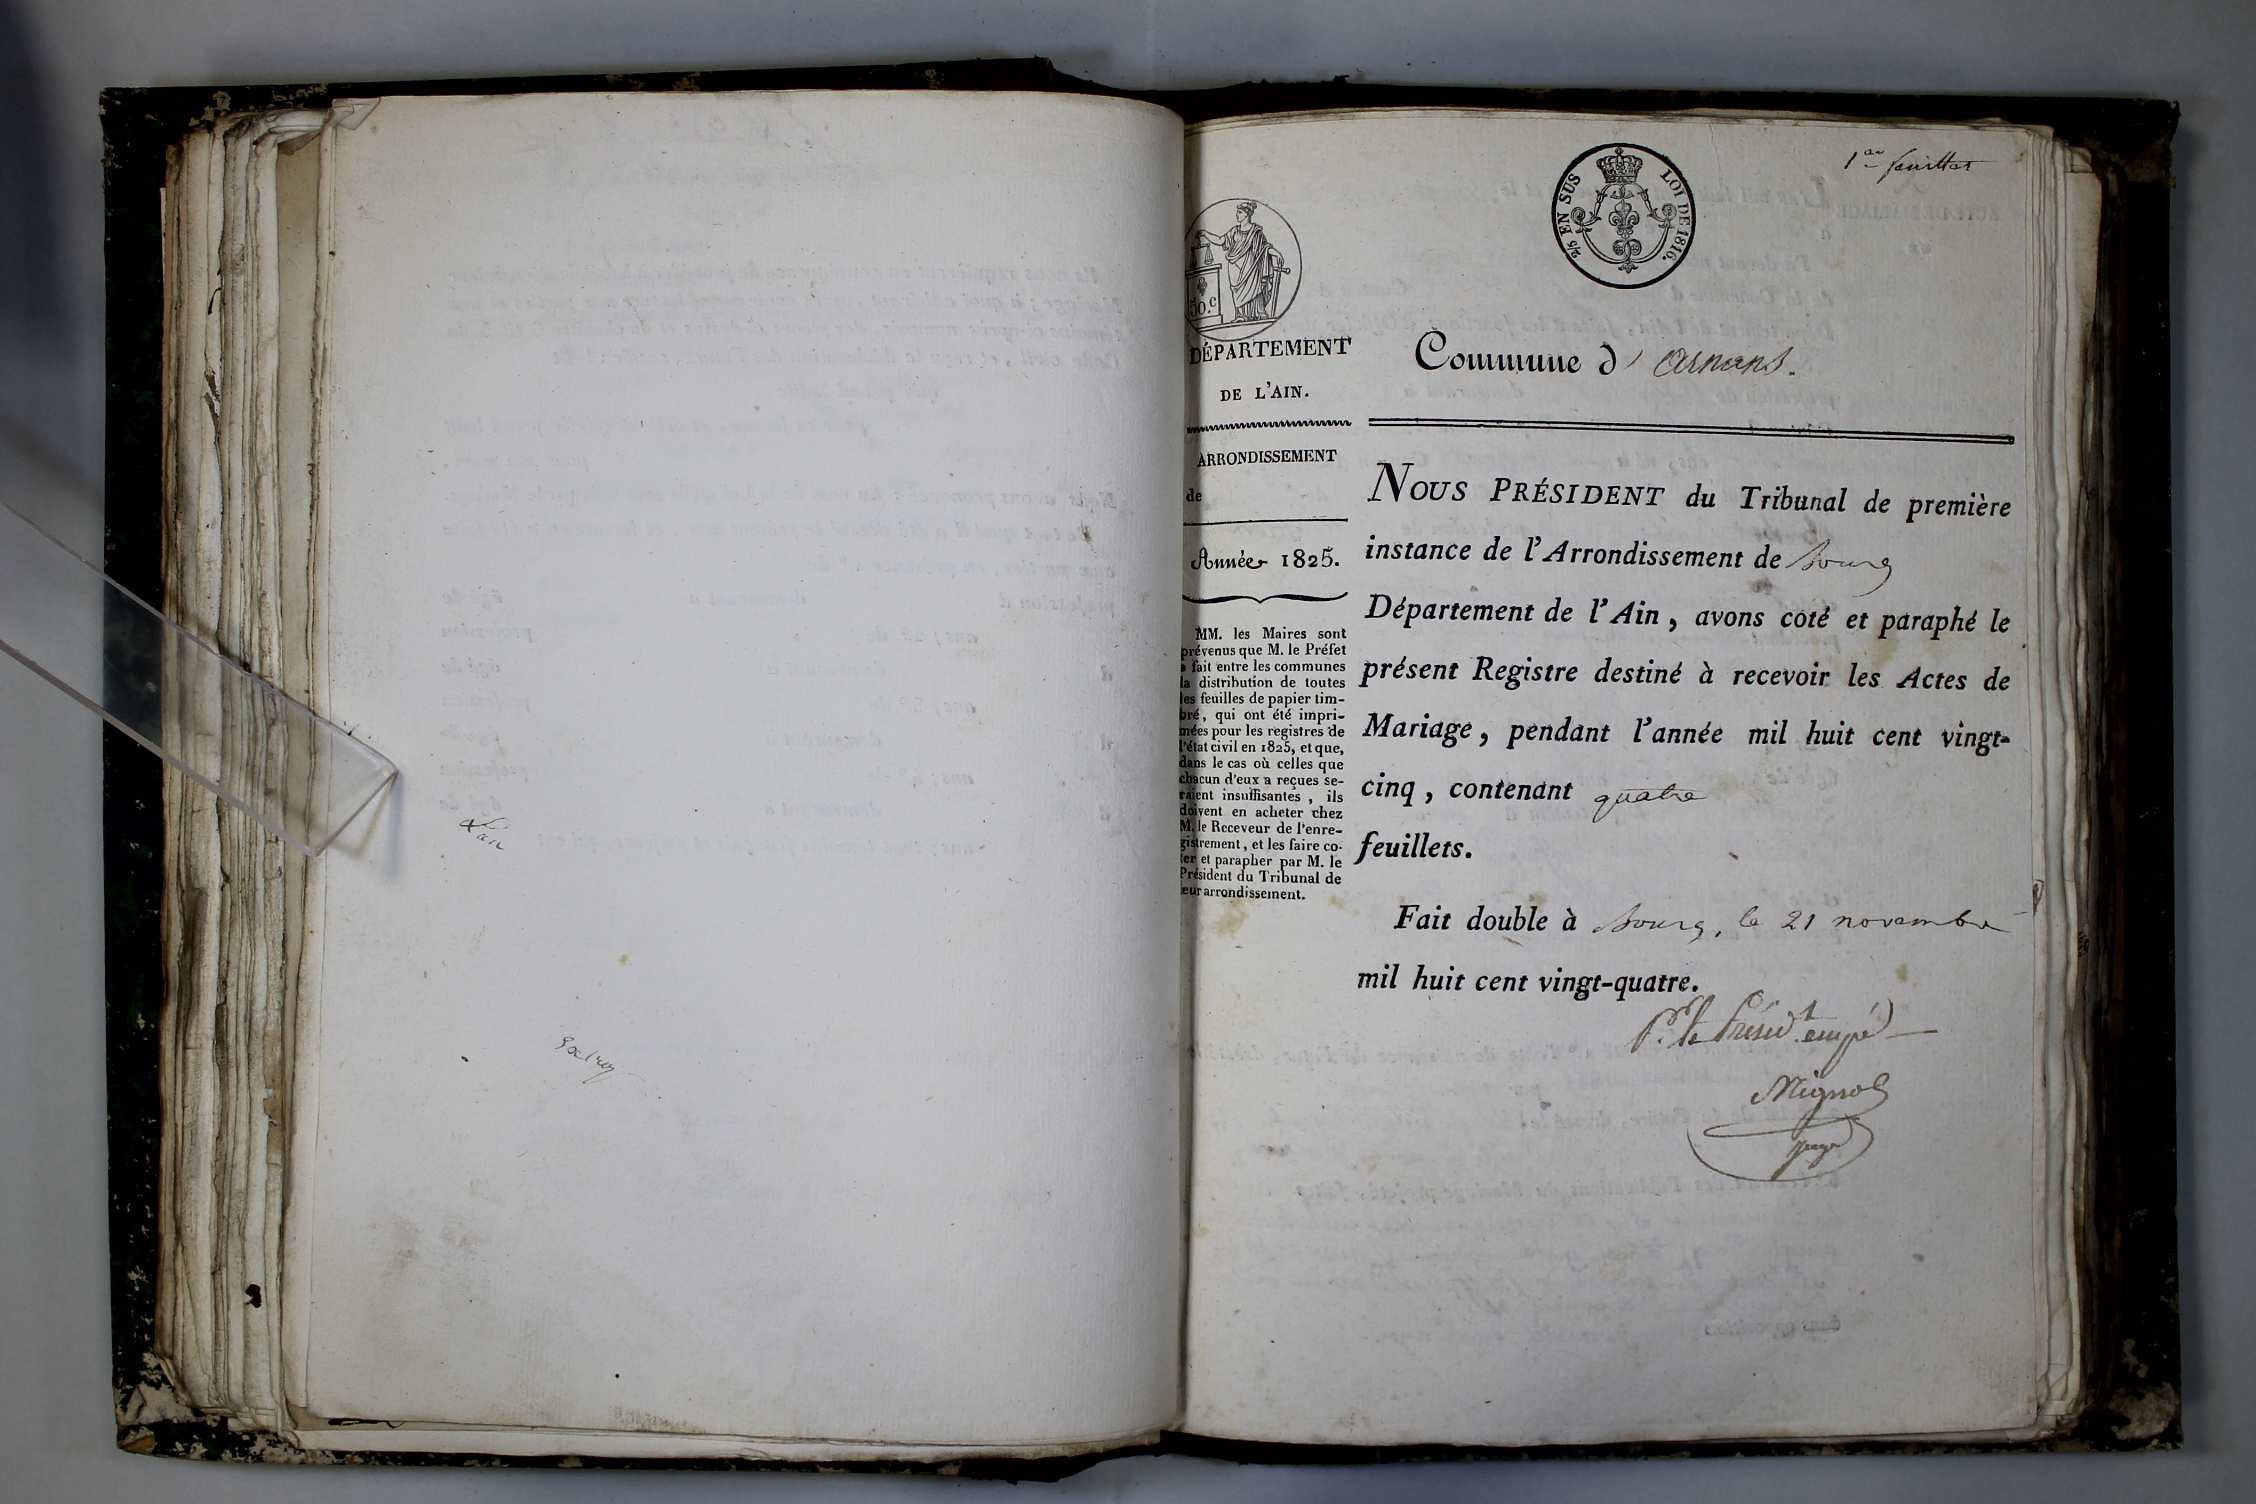 L'an
1er feuillet
2/5 EN SUS
LOI DE 1816.
50.c
DÉPARTEMENT
DE L'AIN.
ARRONDISSEMENT
de
Année 1825.
MM. les Maires sont
prévenus que M. le Préfet
a fait entre les communes
la distribution de toutes
les feuilles de papier tim-
bré, qui ont été impri-
mées pour les registres de
l'état civil en 1825, et que,
dans le cas où celles que
chacun d'eux a reçues se-
raient insuffisantes, ils
doivent en acheter chez
M. le Receveur de l'enre-
gistrement, et les faire co-
ter et parapher par M. le
Président du Tribunal de
leur arrondissement.
Commune d'Arnans.
NOUS PRÉSIDENT du Tribunal de première
instance de l'Arrondissement de Bourg
Département de l'Ain, avons coté et paraphé le
présent Registre destiné à recevoir les Actes de
Mariage, pendant l'année mil huit cent vingt-
cinq, contenant quatre
feuillets.
Fait double à Bourg, le 21 novembre
mil huit cent vingt-quatre.
Pr. le Présidt. empé
Mignot
juge